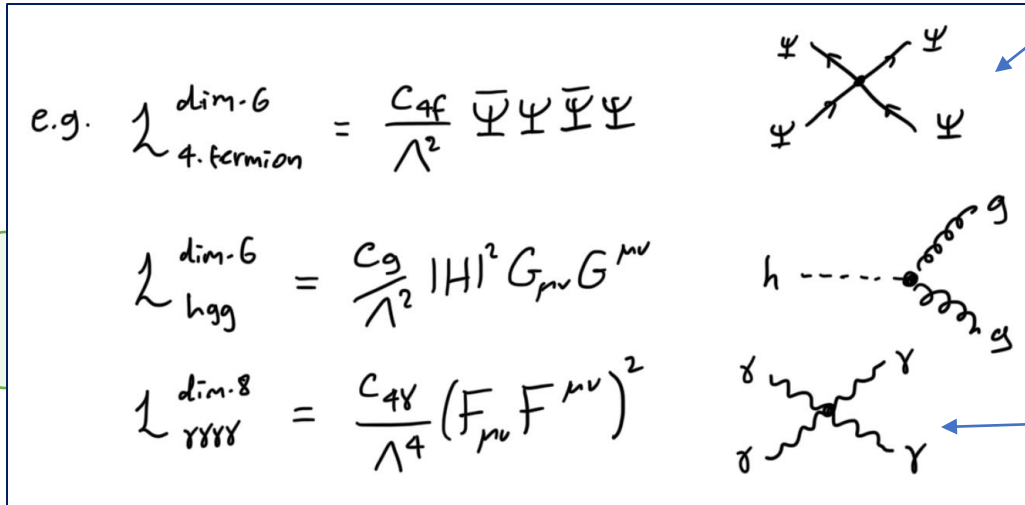 e.g. ℒ^{dim-6}_{4-fermion} = \frac{C_{4f}}{Λ^2} \bar{Ψ} Ψ \bar{Ψ} Ψ
Ψ Ψ
Ψ Ψ
ℒ^{dim-6}_{hgg} = \frac{C_g}{Λ^2} |H|^2 G_{μν} G^{μν}
h g
g
ℒ^{dim-8}_{γγγγ} = \frac{C_{4γ}}{Λ^4} (F_{μν} F^{μν})^2
γ γ
γ γ